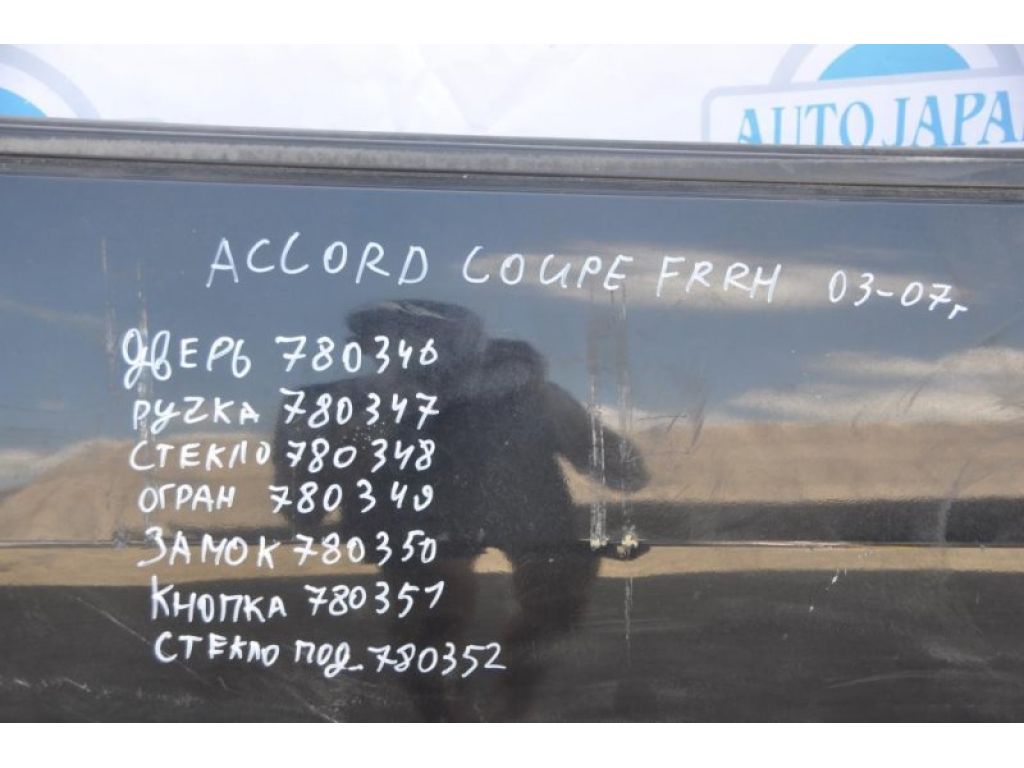 AUTO JAPA
ACCORD COUPE FRRH 03-07г
ДВЕРЬ 780346
РУЧКА 780347
СТЕКЛО 780348
ОГРАН 780349
ЗАМОК 780350
КНОПКА 780351
СТЕКЛО ПОД_780352